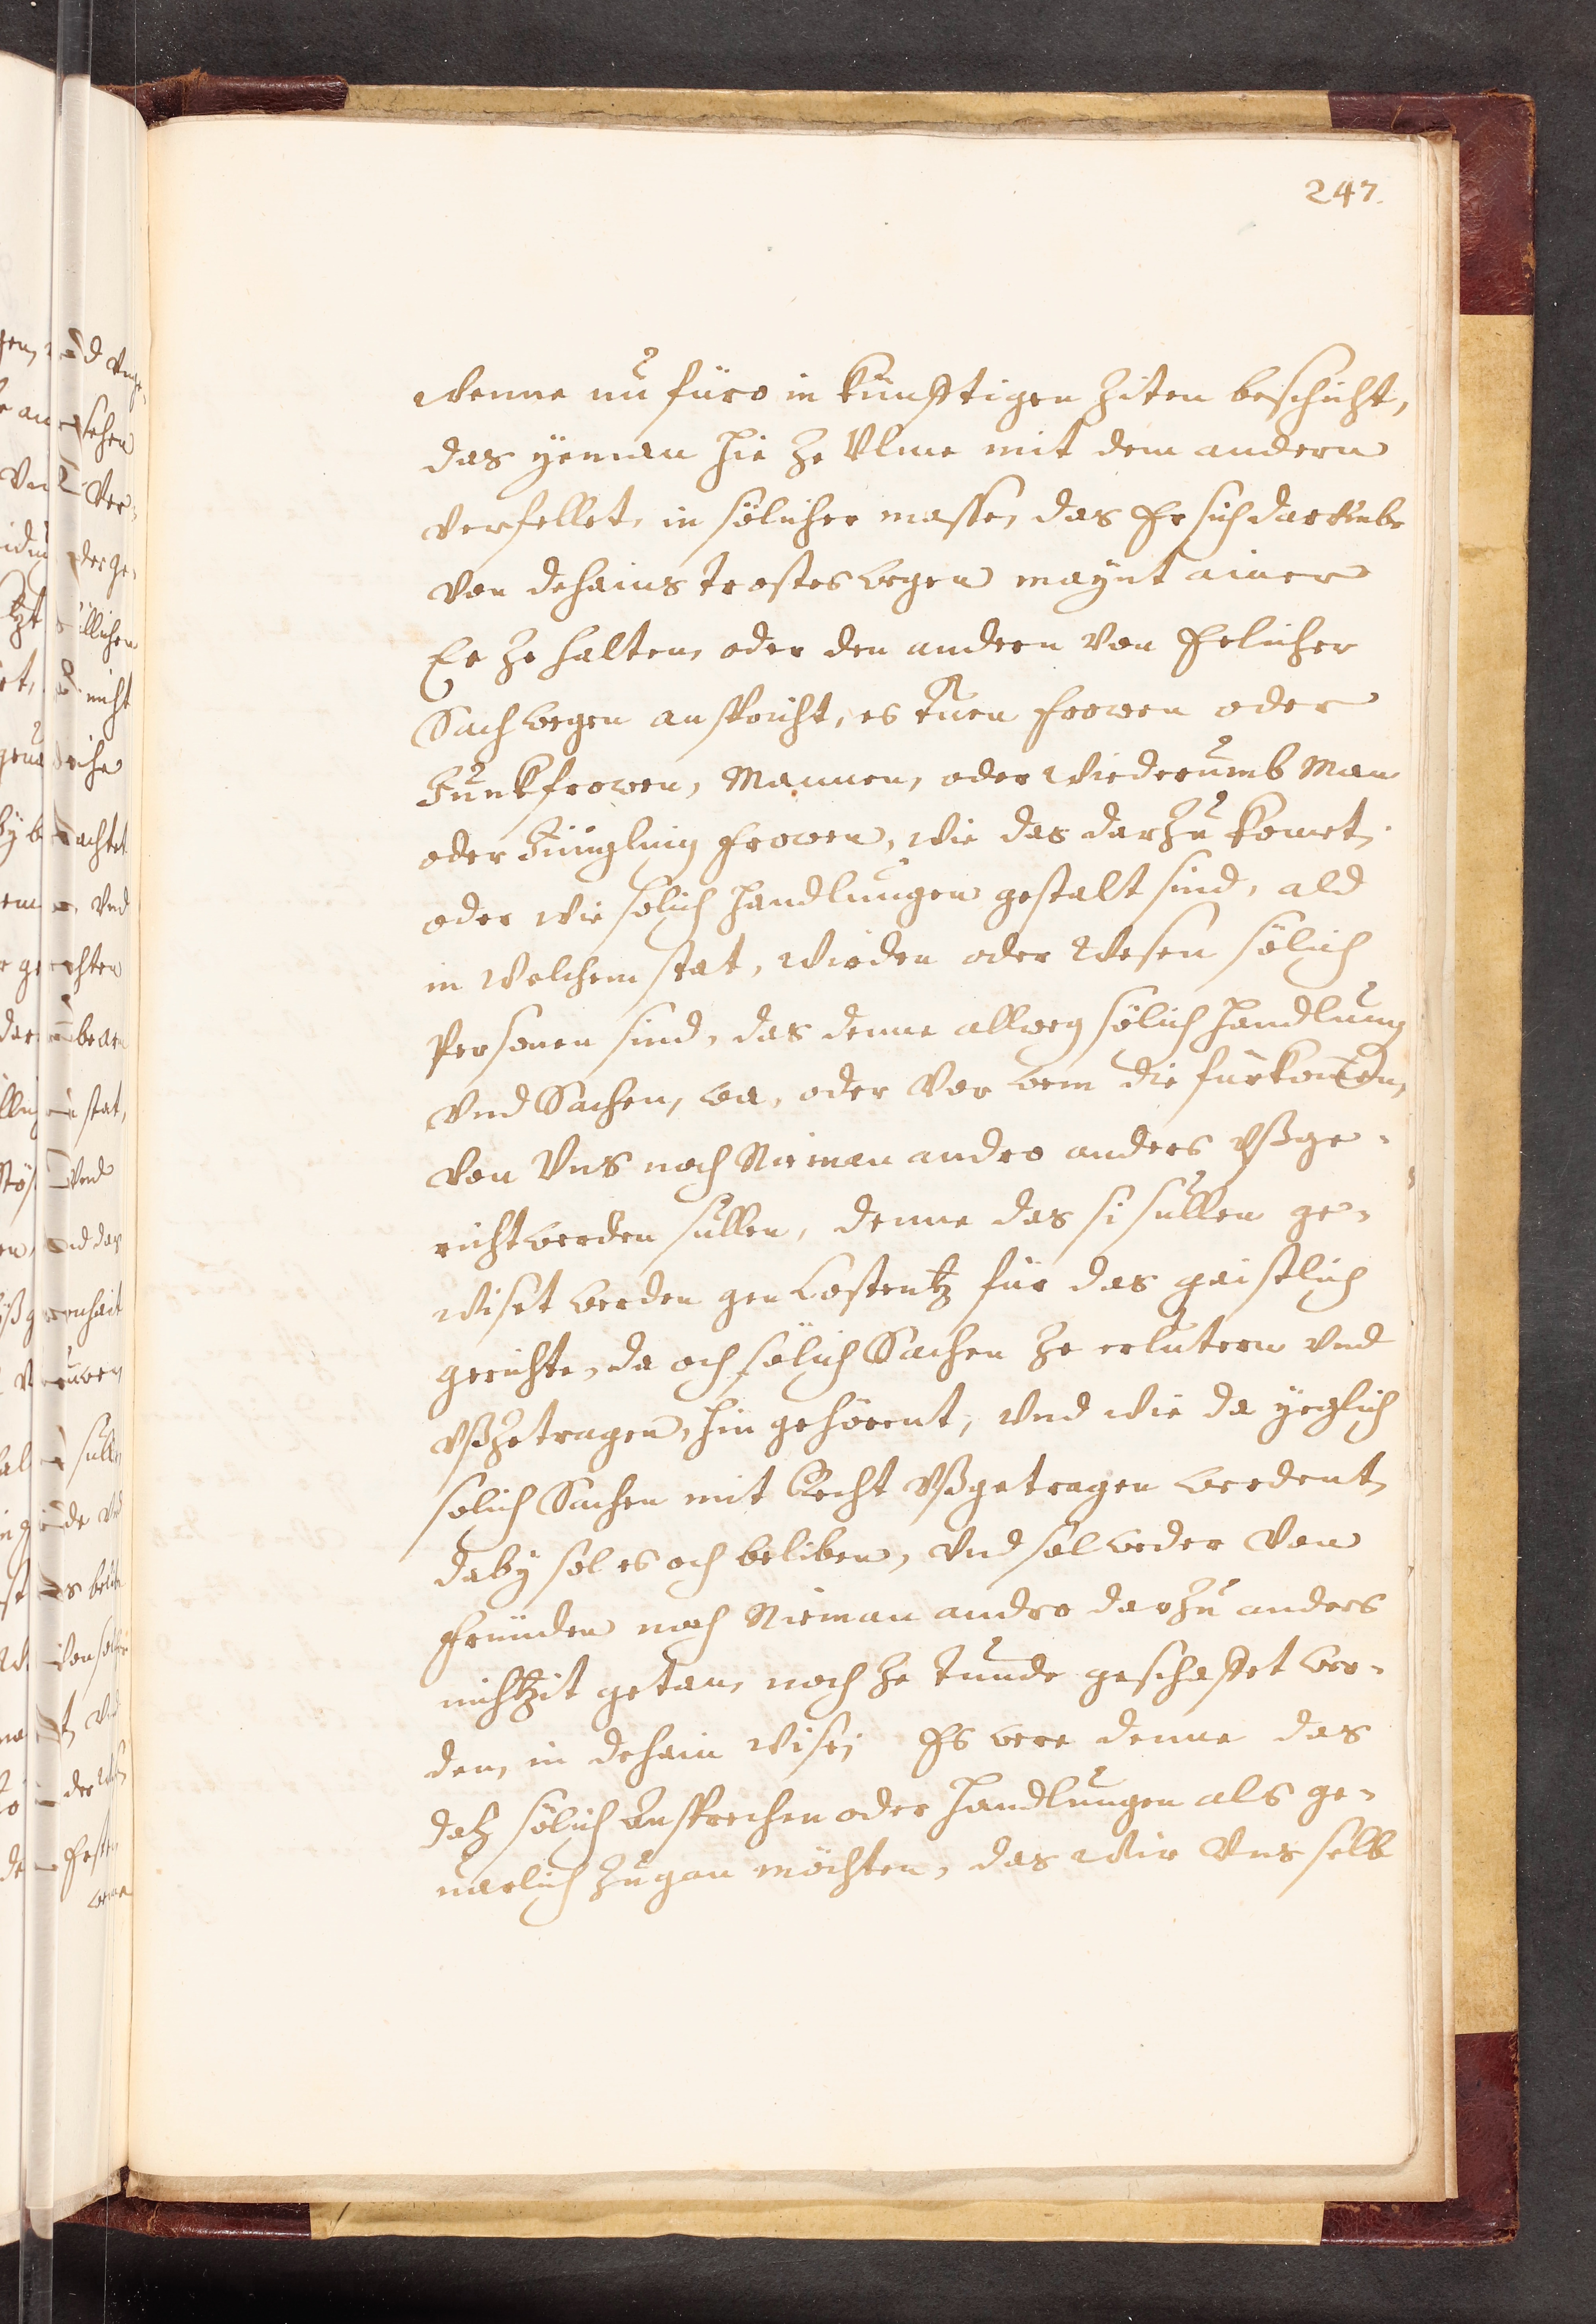 247.
Wenne nu füro in künfftigen Ziten beschicht,
das yeman hie ze Ulme mit dem andern
verfellet, in sölicher masse, das Er sich darumbe
von dehains trostes wegen maynt ainer
Ee ze halten, oder den andern von Eelicher
Sach wegen anspricht, es tuen frowen oder
Junkfrowen, Mannen, oder Wiederumb Man
oder Jüngling frowen, wie das darzu komet,
oder wie solich handlungen gestalt sind, ald
in welchem stat, Wirden oder Wesen sölich
Personen sind, das denne allweg sölich handlung
vnd Sachen, wa, oder vor wem die fürkomen,
von Vns noch Nieman andro anders vßge-
richt werden sullen, denne das si sullen ge-
wiset werden gen Costentz für das gaistlich
gerichte, da och sölich Sachen ze erlutern vnd
vßzetragen, hin gehörent, vnd wie da yeglich
solich Sachen mit Recht vßgetragen werdent,
daby sol es och beliben, vnd sol weder von
fründen noch Nieman andro darzu anders
nichtzit getan, noch ze tunde geschaffet wer-
den, in dehain wise, Es were denne das
daz sölich Ansprechen oder handlungen als ge-
uarlich zugan möchten, das Wir Vns selb